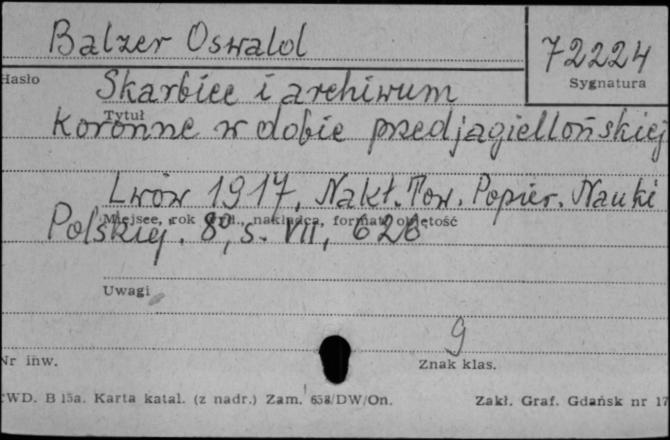 Balzer Oswald
72224
Hasło
Sygnatura
Skarbiec i archiwum
Tytuł
koronne w dobie przedjagiellońskiej
Lwów 1917, Nakł. Tow. Popier. Nauki
Miejsce, rok wyd., nakładca, format, objętość
Polskiej. 8°, s. VII, 626
Uwagi
9
Nr inw.
Znak klas.
CWD. B 15a. Karta katal. (z nadr.) Zam. 658/DW/On.
Zakł. Graf. Gdańsk nr 17